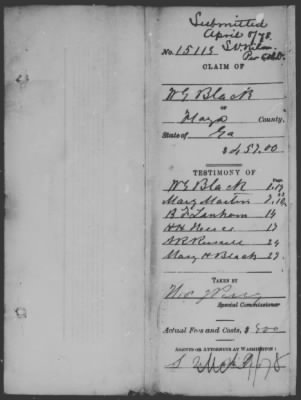 Submitted
April 8/78.
No. 15115
CLAIM OF
W G Black
OF
Mayo County,
State of Ga
$457.00
TESTIMONY OF
Page
W G Black 1.
Mary Martin
B F Lanham 14
H H 17
A R Russell 24
Mary H Black 27.
TAKEN BY
Special Commissioner
Actual Fees and Costs, $
AGENTS OR ATTORNEYS AT WASHINGTON: